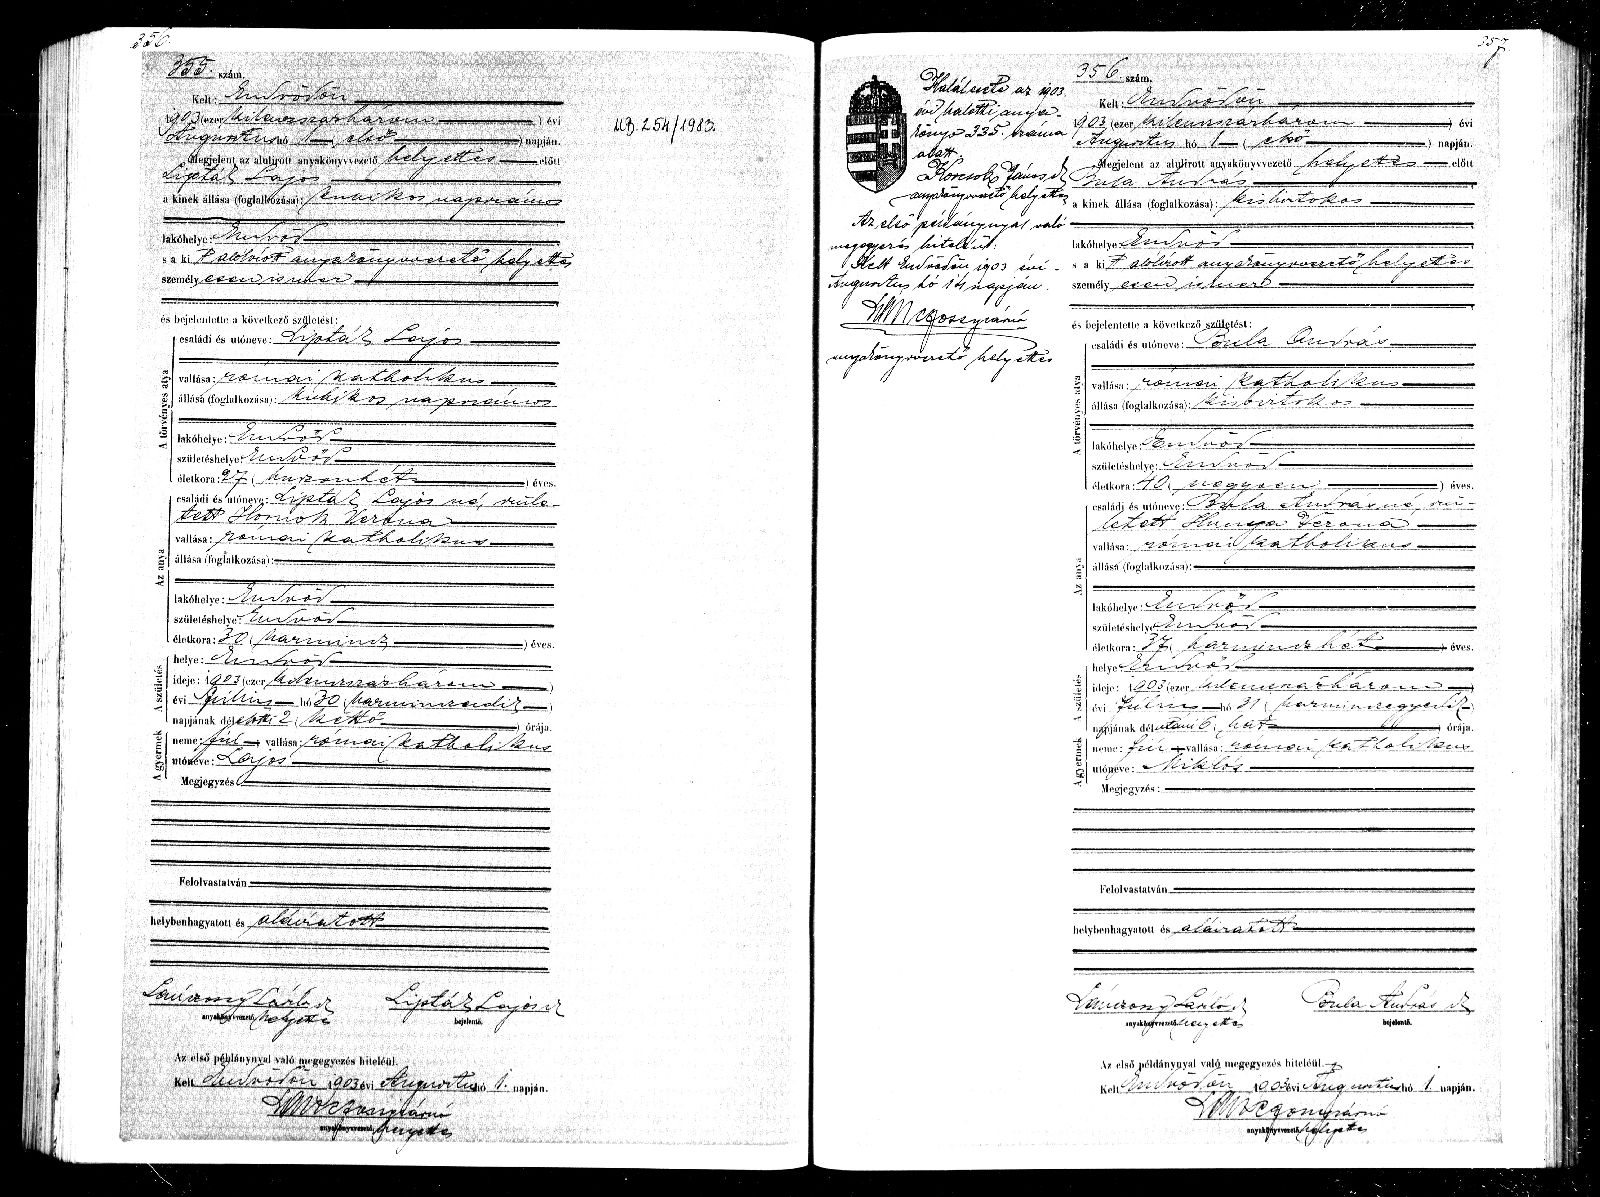 356.
355. szám.
Kelt: Endrődön
1903 (ezer kilenczszázhárom) évi
Augusztus hó 1 (első) napján.
Megjelent az alulirott anyakönyvvezető helyettes előtt
Lipták Lajos
a kinek állása (foglalkozása): kubikos napszámos
lakóhelye: Endrőd
s a kit alólírott anyakönyvvezető helyettes
személyesen ismer
és bejelentette a következő születést:
A törvényes atya
családi és utóneve: Lipták Lajos
vallása: római katholikus
állása (foglalkozása): kubikos napszámos
lakóhelye: Endrőd
születéshelye: Endrőd
életkora: 27 (huszonhét) éves.
Az anya
családi és utóneve: Lipták Lajosné, szüle-
tett Hornok Verona
vallása: római katholikus
állása (foglalkozása):
lakóhelye: Endrőd
születéshelye: Endrőd
életkora: 30 (harmincz) éves.
A születés
helye: Endrőd
ideje: 1903 (ezer kilenczszázhárom)
évi Julius hó 30 (harminczadik)
napjának délelőtti 2 (kettő) órája.
A gyermek
neme: fiú vallása: római katholikus
utóneve: Lajos
Megjegyzés:
Felolvastatván
helybenhagyatott és aláiratott
anyakönyvvezető helyettes
Lipták Lajos
bejelentő.
Az első példánynyal való megegyezés hiteléül.
Kelt Endrődön 1903 évi Augusztus hó 1. napján.
anyakönyvvezető helyettes
MB. 254/1983.
357
Halálesete az 1903
évi halotti anya-
könyv 335. száma
alatt
János
anyakönyvvezető helyettes
Az első példánynyal való
megegyezés hiteléül:
Kelt Endrődön 1903 évi
Augusztus hó 14 napján.
anyakönyvvezető helyettes
356 szám.
Kelt: Endrődön
1903 (ezer kilenczszázhárom) évi
Augusztus hó 1 (első) napján.
Megjelent az alulirott anyakönyvvezető helyettes előtt
Bula András
a kinek állása (foglalkozása): kisbirtokos
lakóhelye: Endrőd
s a kit alólírott anyakönyvvezető helyettes
személyesen ismer
és bejelentette a következő születést:
A törvényes atya
családi és utóneve: Bula András
vallása: római katholikus
állása (foglalkozása): kisbirtokos
lakóhelye: Endrőd
születéshelye: Endrőd
életkora: 40 (negyven) éves.
Az anya
családi és utóneve: Bula Andrásné, szü-
letett Hunya Verona
vallása: római katholikus
állása (foglalkozása):
lakóhelye: Endrőd
születéshelye: Endrőd
életkora: 37 (harminczhét) éves.
A születés
helye: Endrőd
ideje: 1903 (ezer kilenczszázhárom)
évi Julius hó 31 (harminczegyedik)
napjának délutáni 6 (hat) órája.
A gyermek
neme: fiú vallása: római katholikus
utóneve: Miklós
Megjegyzés:
Felolvastatván
helybenhagyatott és aláiratott
anyakönyvvezető helyettes
Bula András
bejelentő.
Az első példánynyal való megegyezés hiteléül
Kelt Endrődön 1903 évi Augusztus hó 1 napján.
anyakönyvvezető helyettes